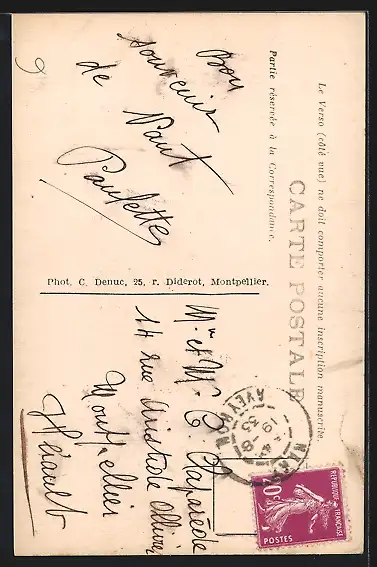 CARTE POSTALE
Le Verso (côté vue) ne doit comporter aucune inscription manuscrite.
Partie réservée à la Correspondance.
Bon
souvenir
de Nant
Paulette
Phot. C. Denuc, 25, r. Diderot, Montpellier.
Mr et Me E. Claparède
14 rue Aristide Ollivier
Montpellier
Hérault
AVEYRON
REPUBLIQUE FRANÇAISE
20c
POSTES